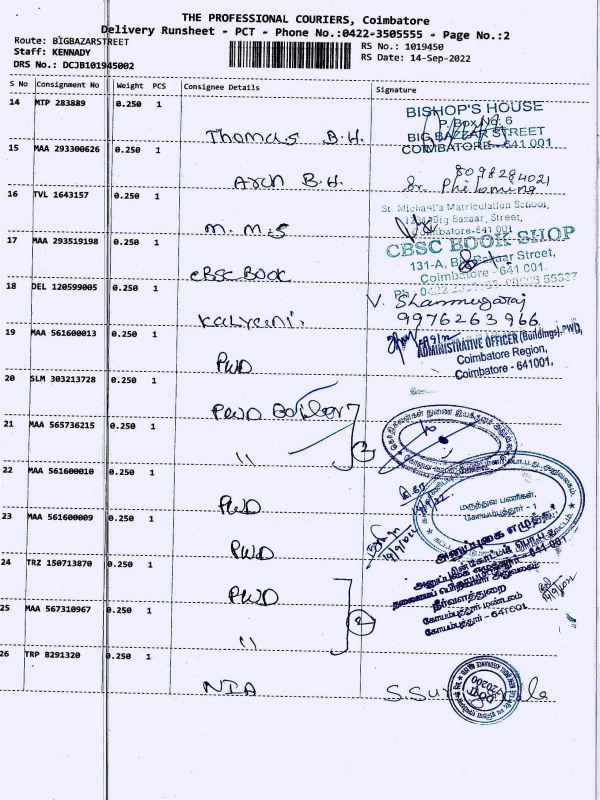 THE PROFESSIONAL COURIERS, Coimbatore
Delivery Runsheet - PCT - Phone No.:0422-3505555 - Page No.:2
Route: BIGBAZARSTREET
Staff: KENNADY
RS No.: 1019450
DRS No.: DCJB101945002
RS Date: 14-Sep-2022
S No Consignment No Weight PCS Consignee Details Signature
14 MTP 283889 0.250 1
Thomas B.H.
BISHOP'S HOUSE
P. Box No. 6
BIG BAZZAR STREET
COIMBATORE - 641 001
15 MAA 293300626 0.250 1
Arch B.H.
8098284021
Sr. Philomina
16 TVL 1643157 0.250 1
m.m.s
St. Michael's Matriculation School,
Big Bazaar, Street,
Coimbatore-641 001
17 MAA 293519198 0.250 1
CBSC BOOK
CBSC BOOK SHOP
131-A, Big Bazaar Street,
Coimbatore - 641 001.
18 DEL 120599005 0.250 1
Kalyani.
V. Shanmugaraj
9976263966
19 MAA 561600013 0.250 1
PWD
ADMINISTRATIVE OFFICER (Buildings), PWD,
Coimbatore Region,
Coimbatore - 641001.
20 SLM 303213728 0.250 1
PWD Boiler
21 MAA 565736215 0.250 1
"
2
22 MAA 561600010 0.250 1
PWD
மருத்துவ பணிகள்,
கோயம்புத்தூர் - 1
23 MAA 561600009 0.250 1
PWD
24 TRZ 150713870 0.250 1
PWD
தலைமைப் பொறியாளர் அலுவலகம்
நீர்வளத்துறை
கோயம்புத்தூர் மண்டலம்
கோயம்புத்தூர் - 641001
25 MAA 567310967 0.250 1
"
2
26 TRP 8291320 0.250 1
NIA